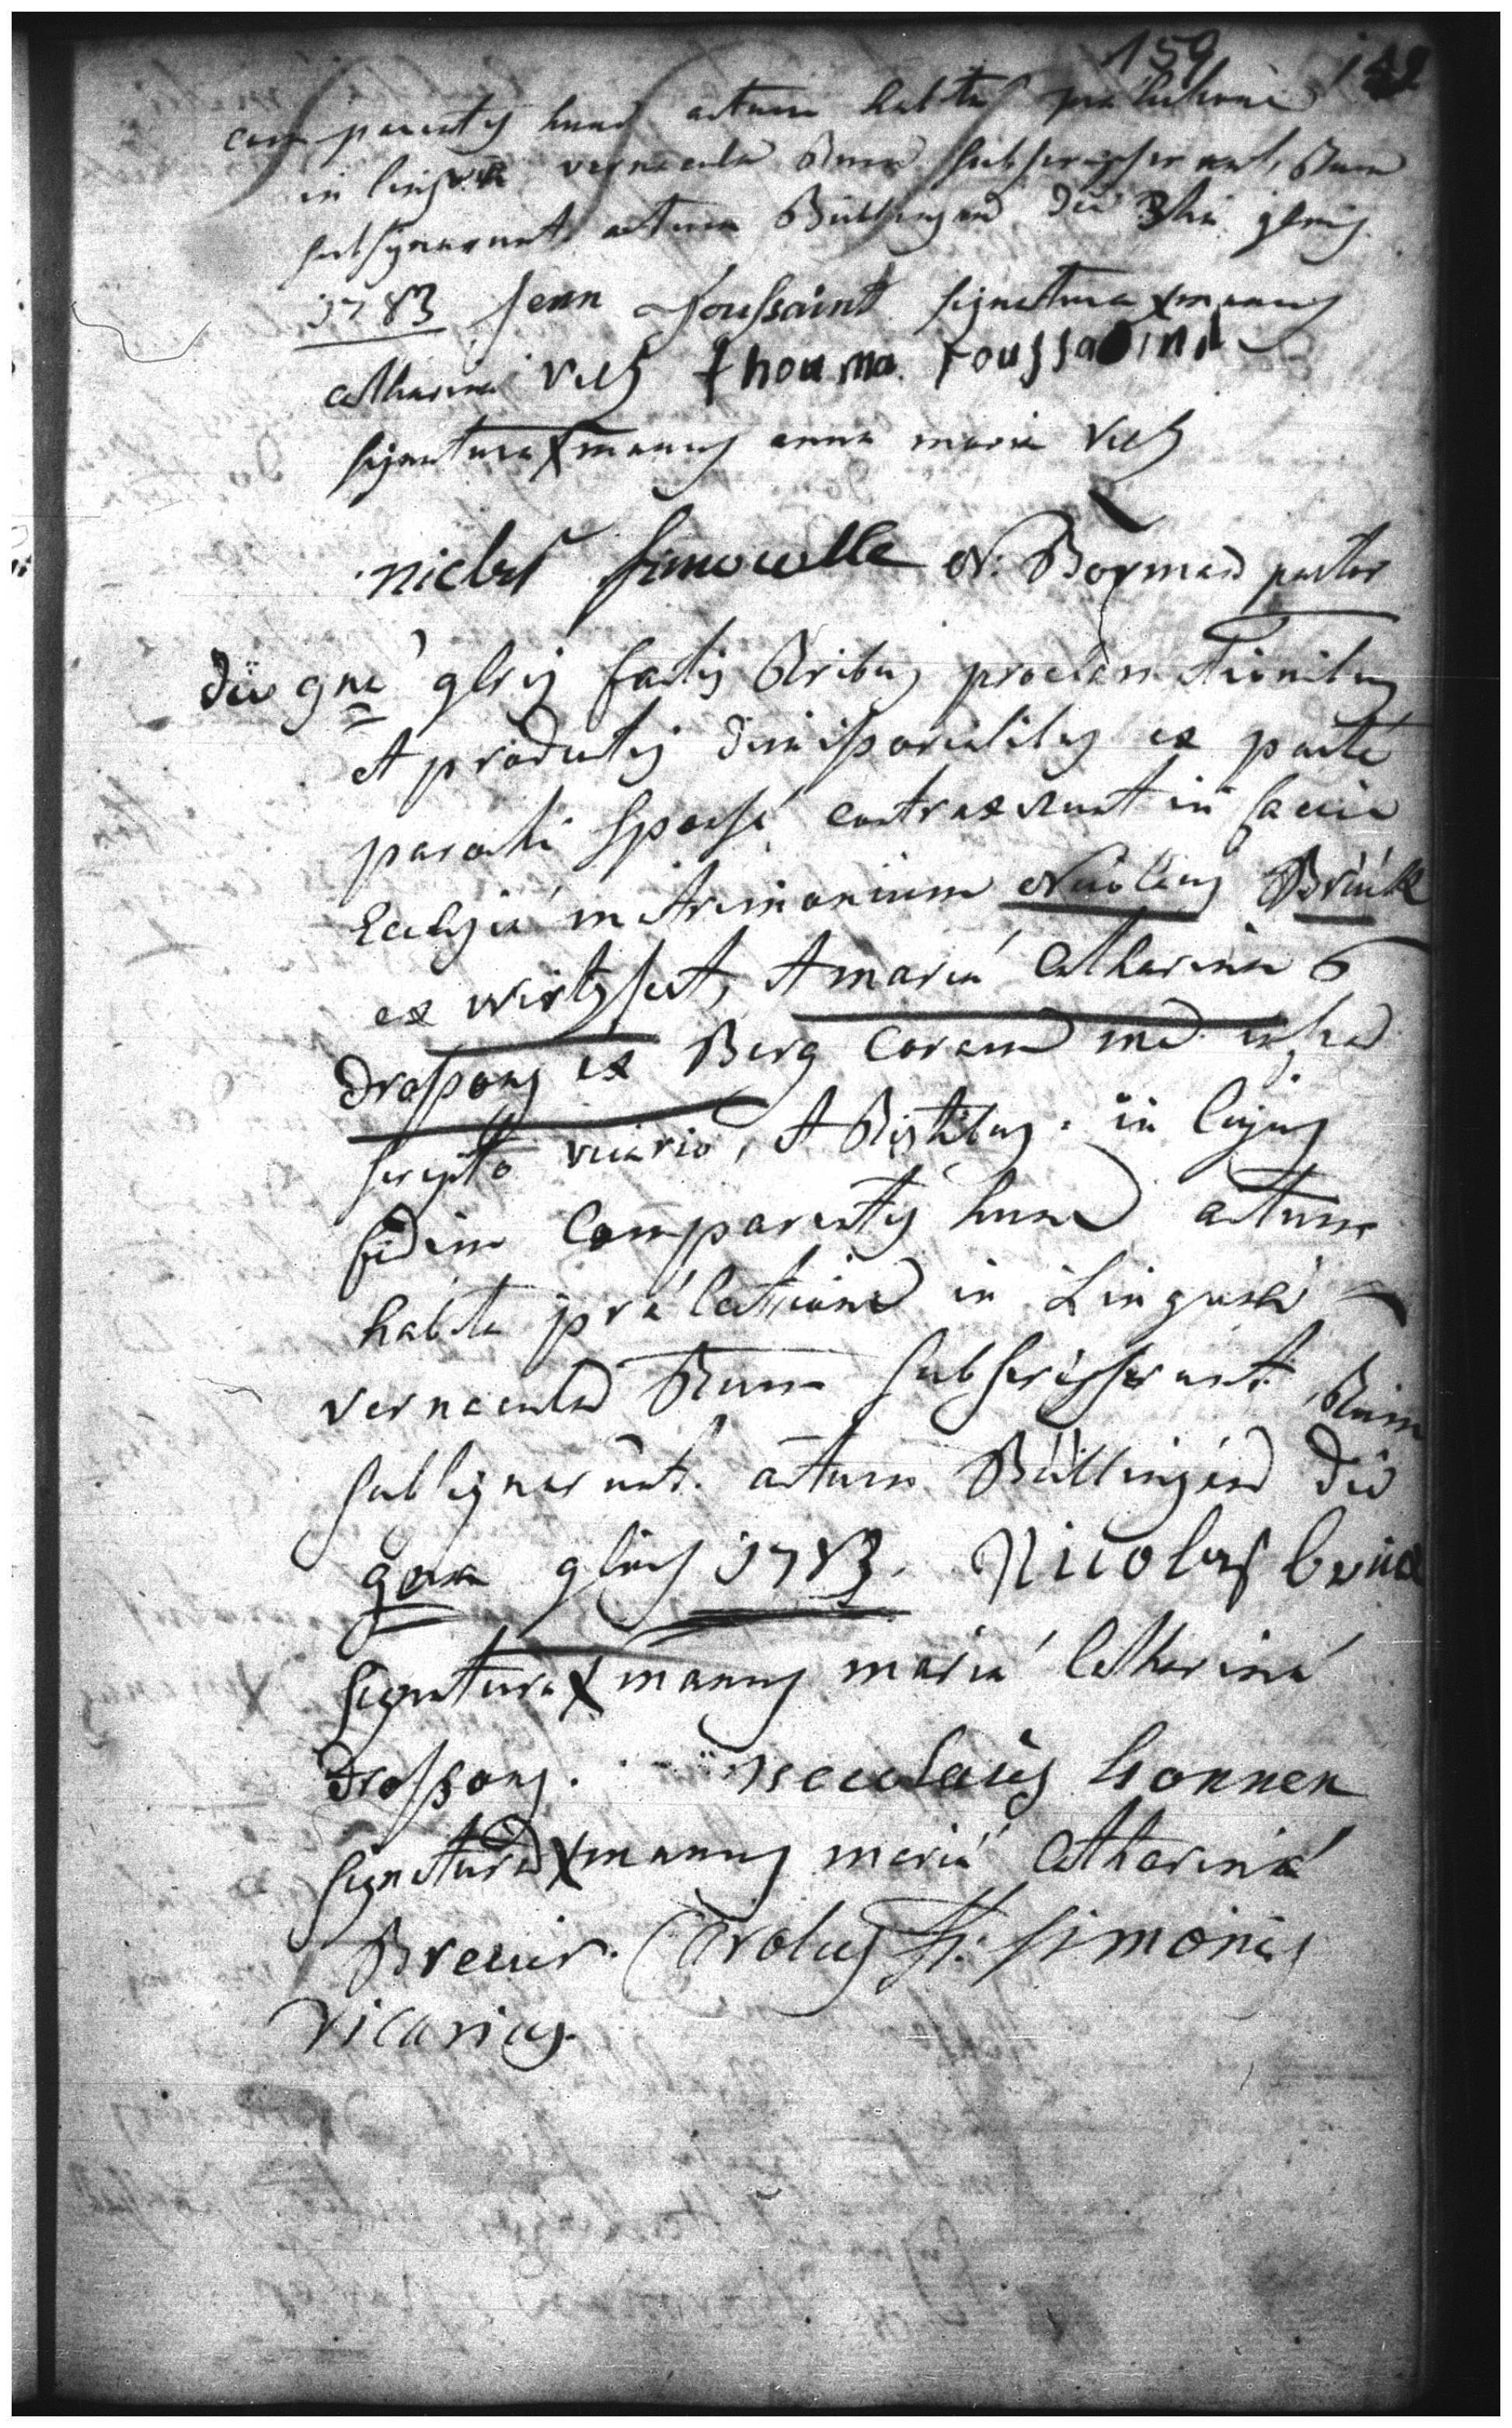 159
comparentes hunc actum habita praelectione
in lingua vernacula tum subscripserunt, tum
subsignarunt actum Büllingen die 3tia 9bris
1783 Jean Toussaint signatura x manus
catharina Vels thouma toussaind
signatura x manus anna maria Vels
niclas simowelle N: Borman pastor
die 9na 9bris factis tribus proclamationibus
et productis dimissorialibus ex parte
parochi sponsi contraxerunt in facie
Ecclesiae matrimonium Nicolaus Brück
ex wirtzfelt, et maria Catharina
Drosson ex Berg coram me infra
scripto vicario, et testibus. in cujus
fidem comparentes hunc actum
habita praelectione in Lingua
vernacula tum subscripserunt tum
subsignarunt. actum Büllingen die
9na 9bris 1783. Nicolas brück
signatura x manus maria Catharina
Drosson. neculaus honnen
signatura x manus maria Catharina
Breuer. Carolus H: simonis
vicarius.